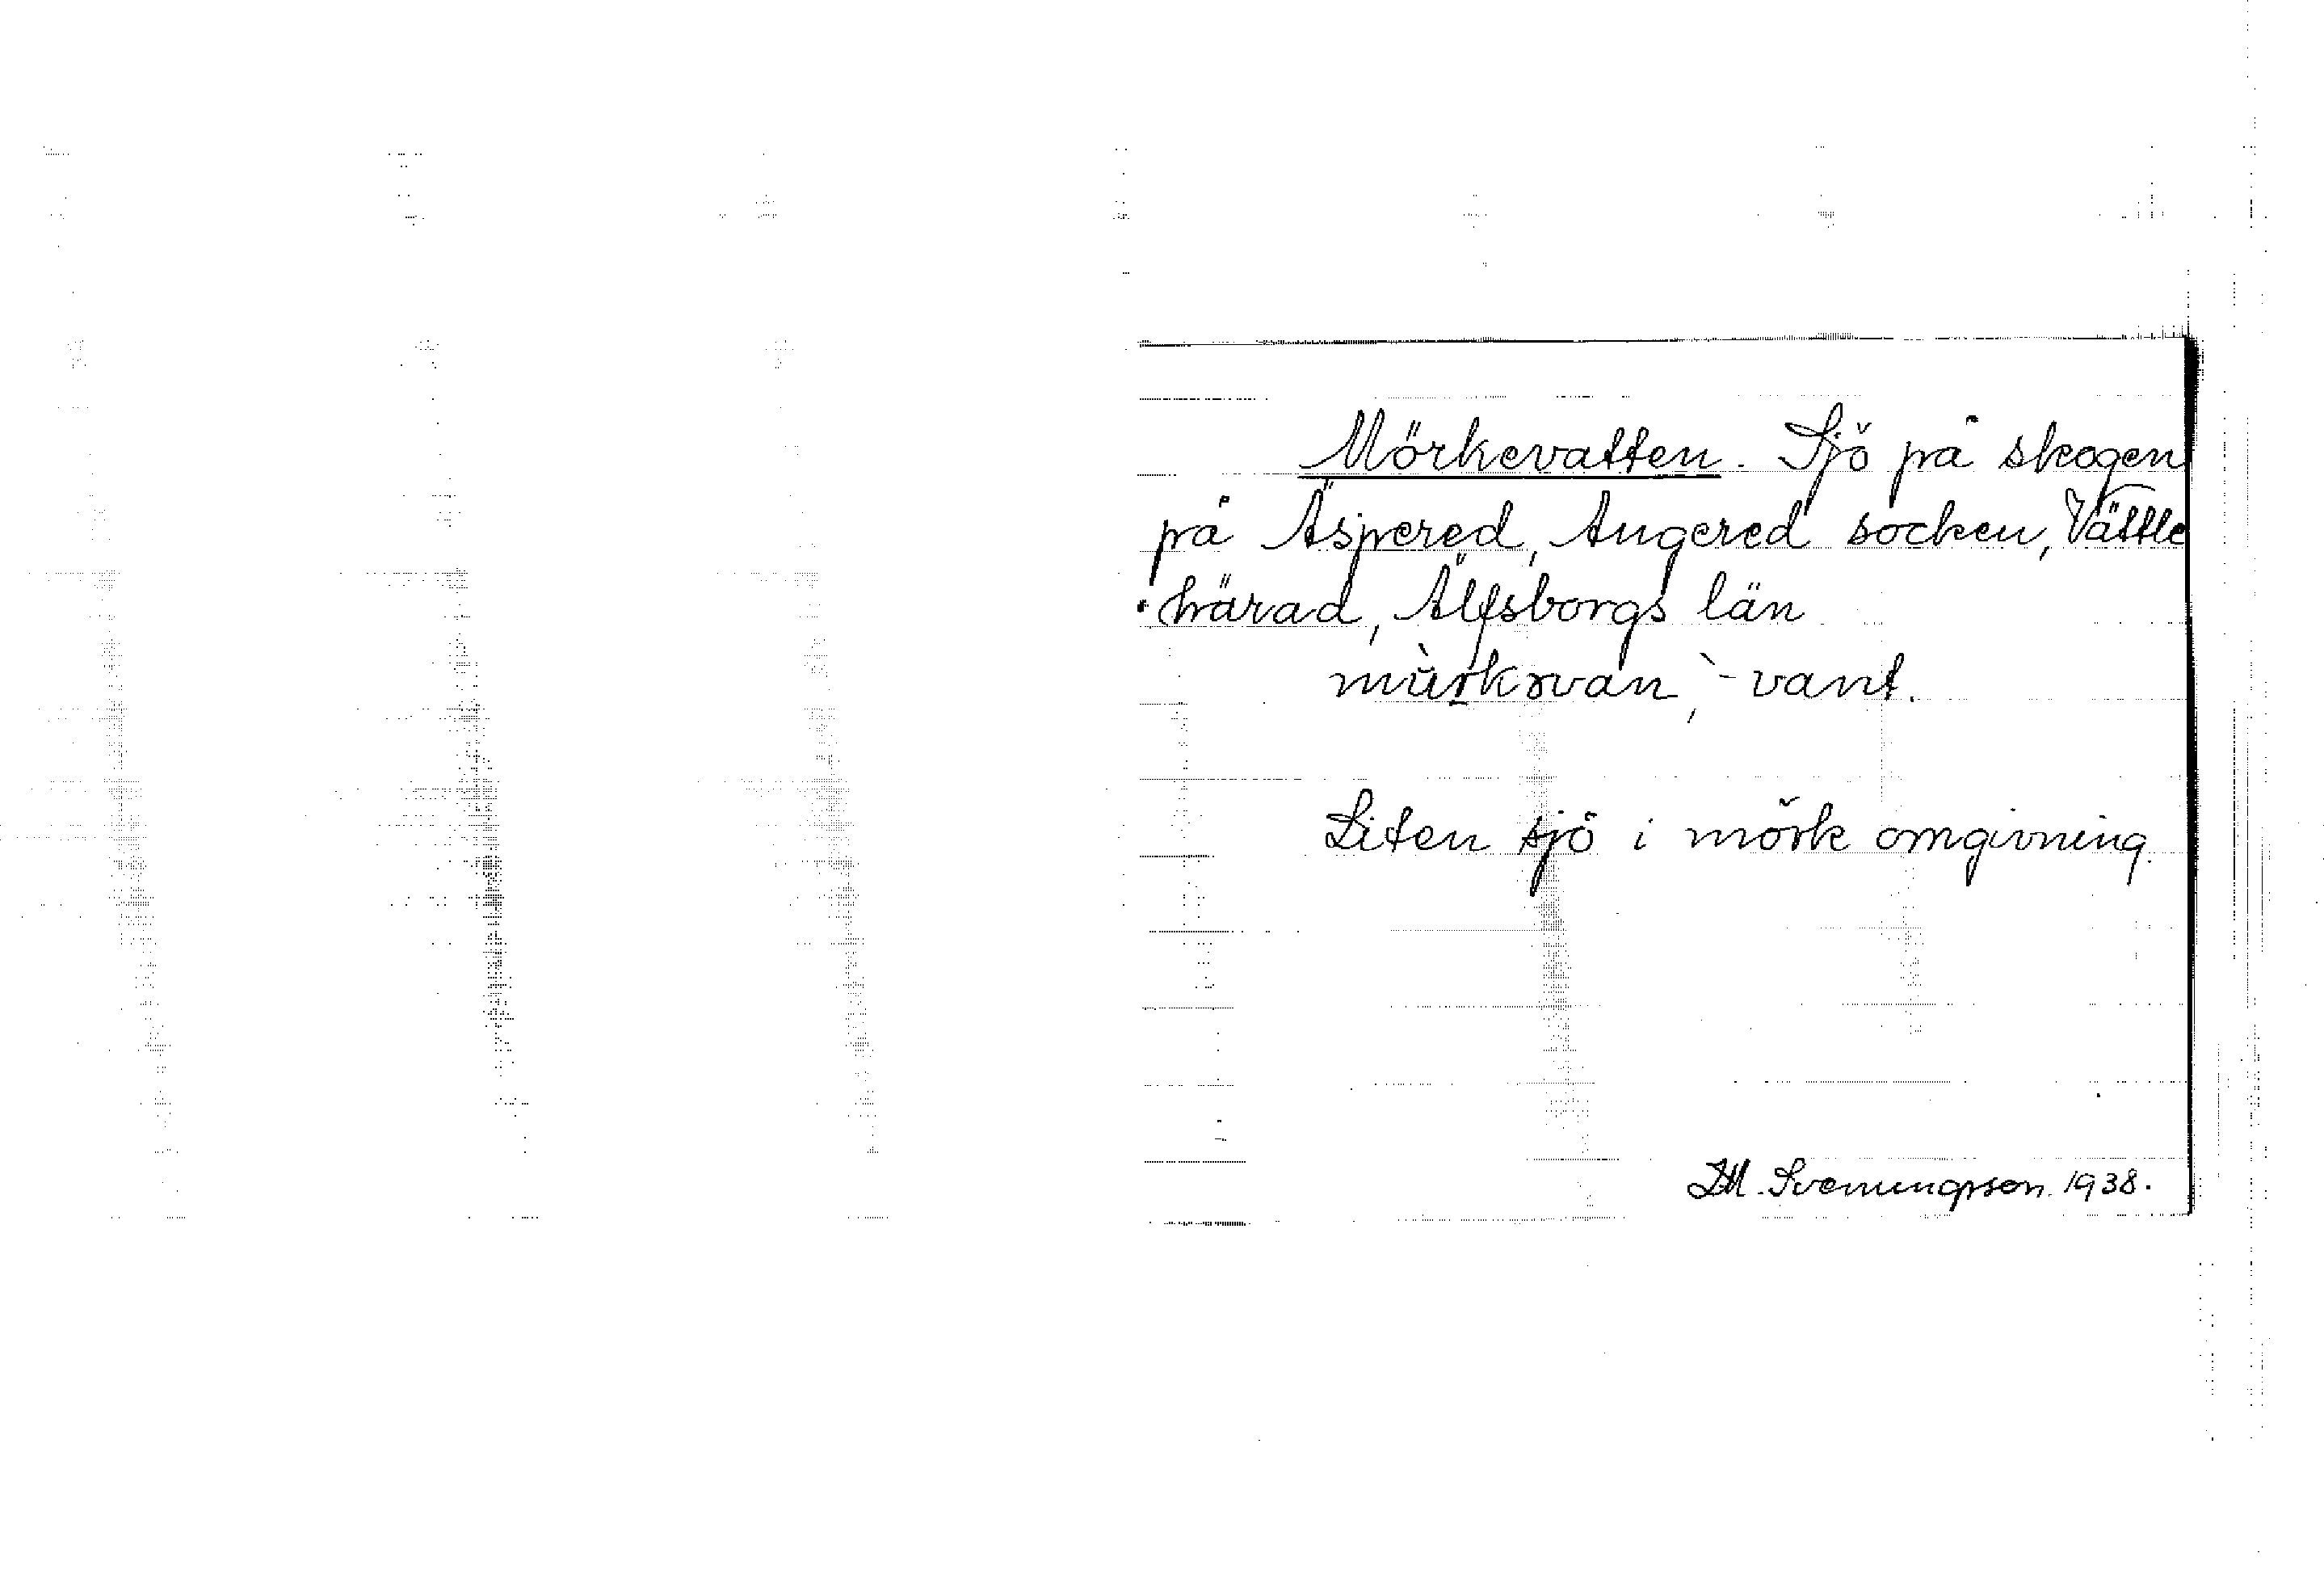 Mörkevatten. Sjö på skogen
på Äspered, Angered socken, Vättle
härad, Älfsborgs län
-vant.
Liten sjö i mörk omgivning.
Svenungsson. 1938.